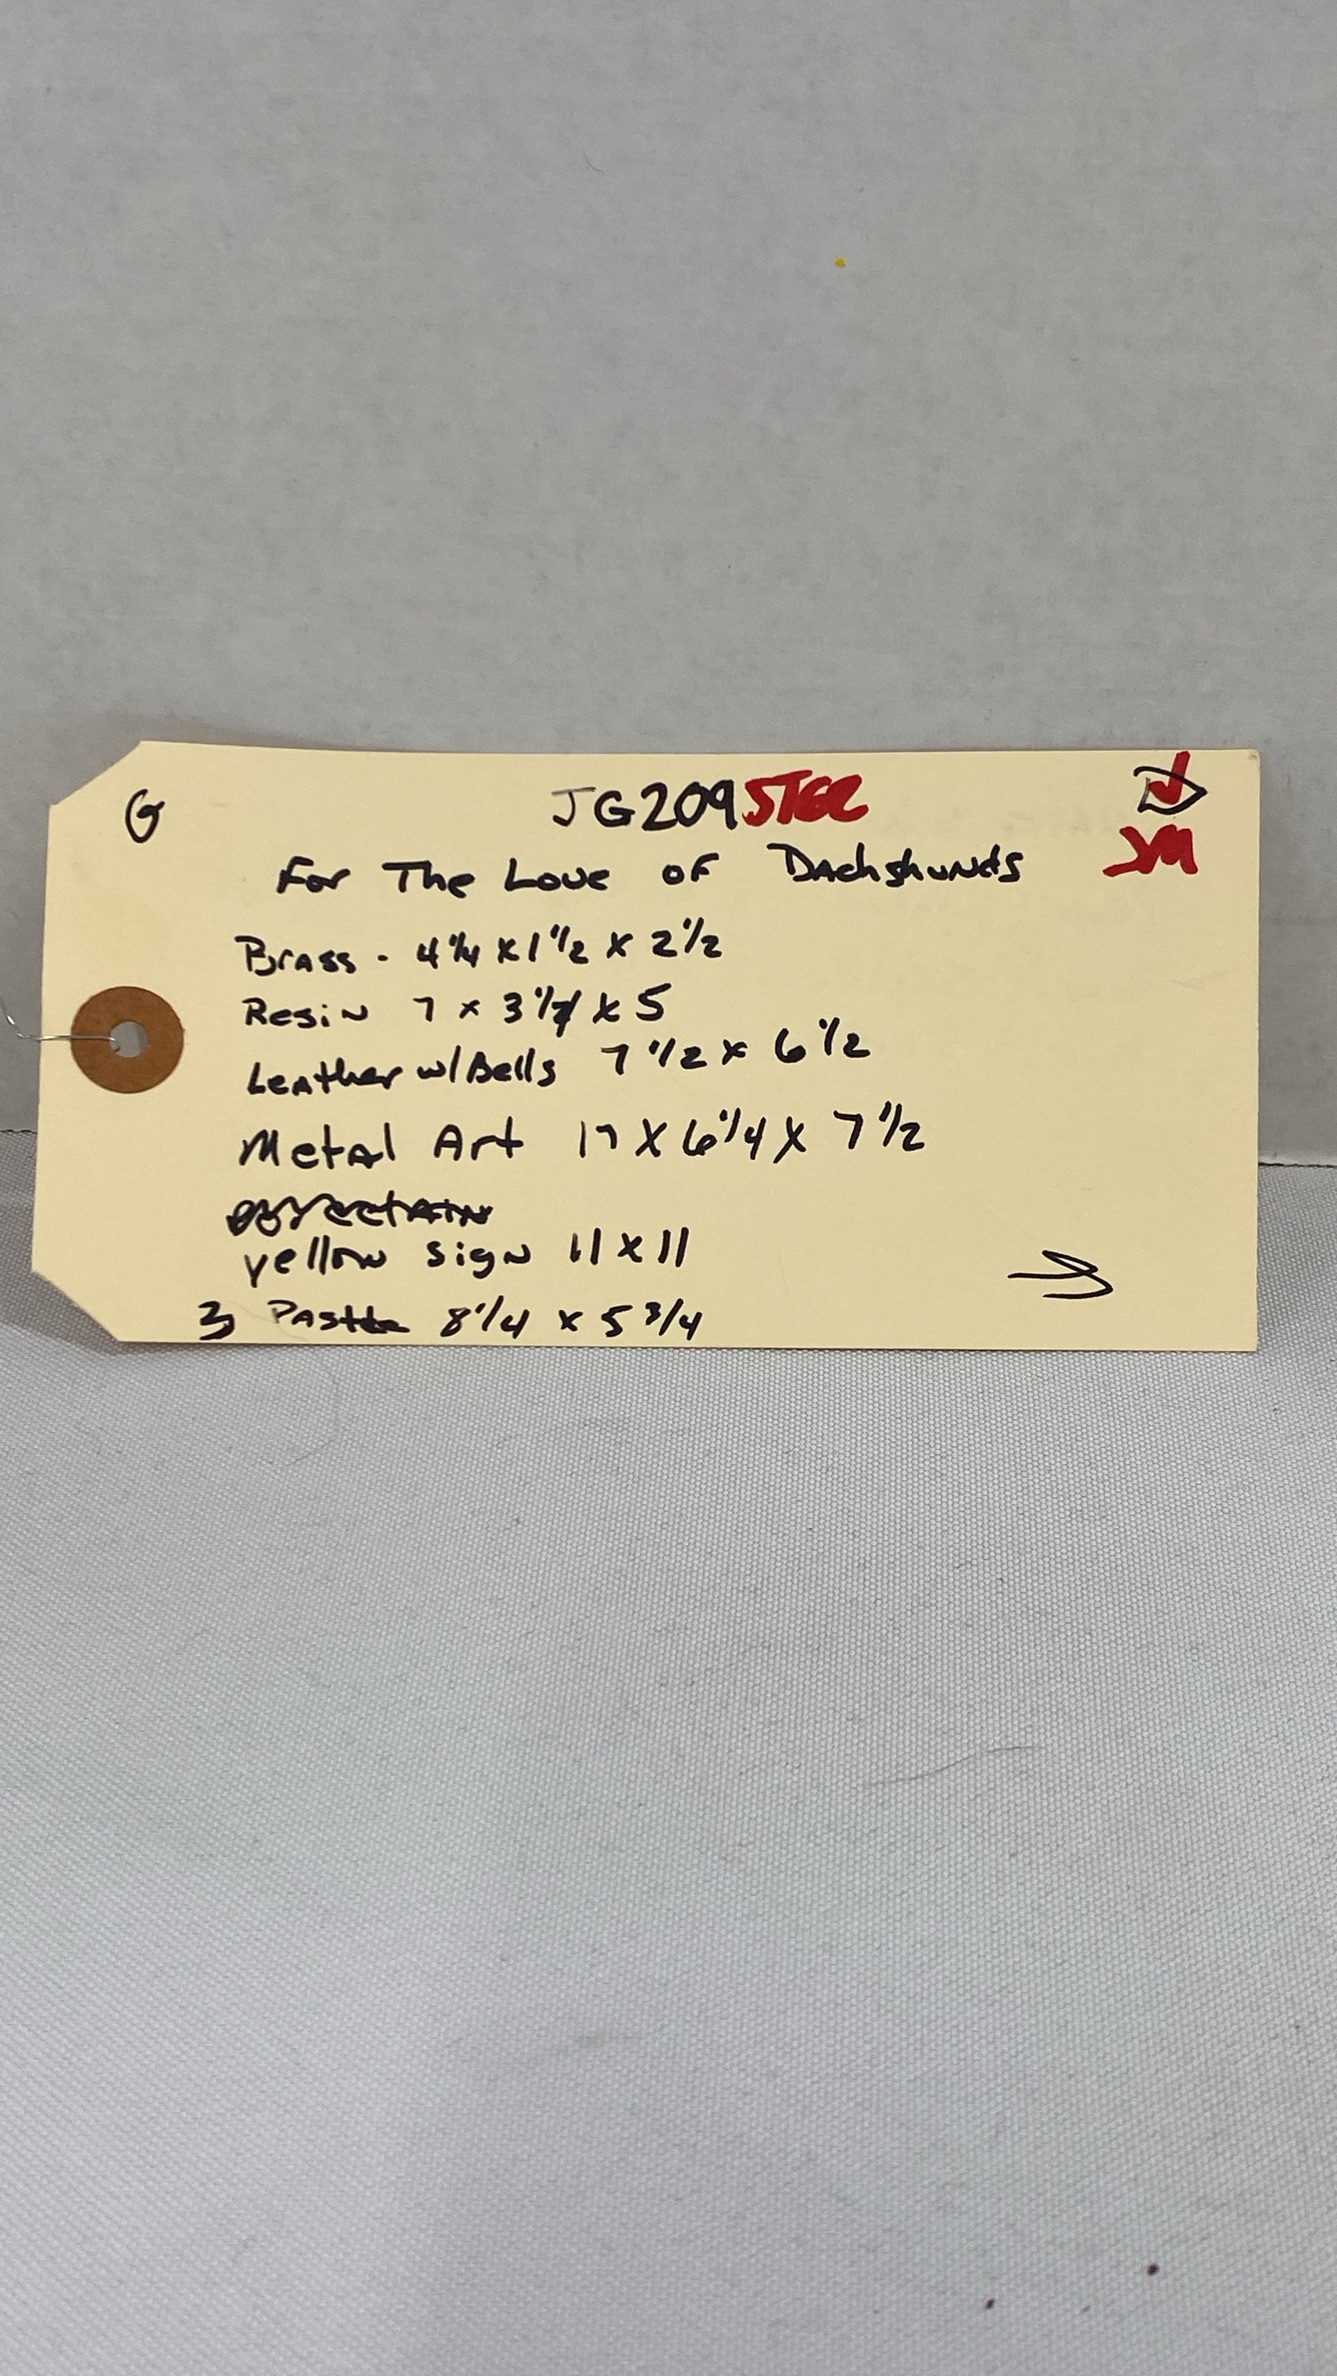 G
JG209
JM
For The Love OF Dachshunds
Brass - 4 1/4 x 1 1/2 x 2 1/2
Resin 7 x 3 x 5
Leather w/Bells 7 1/2 x 6 1/2
Metal Art 17 x 6 1/4 x 7 1/2
yellow sign 11 x 11
3 8 1/4 x 5 3/4